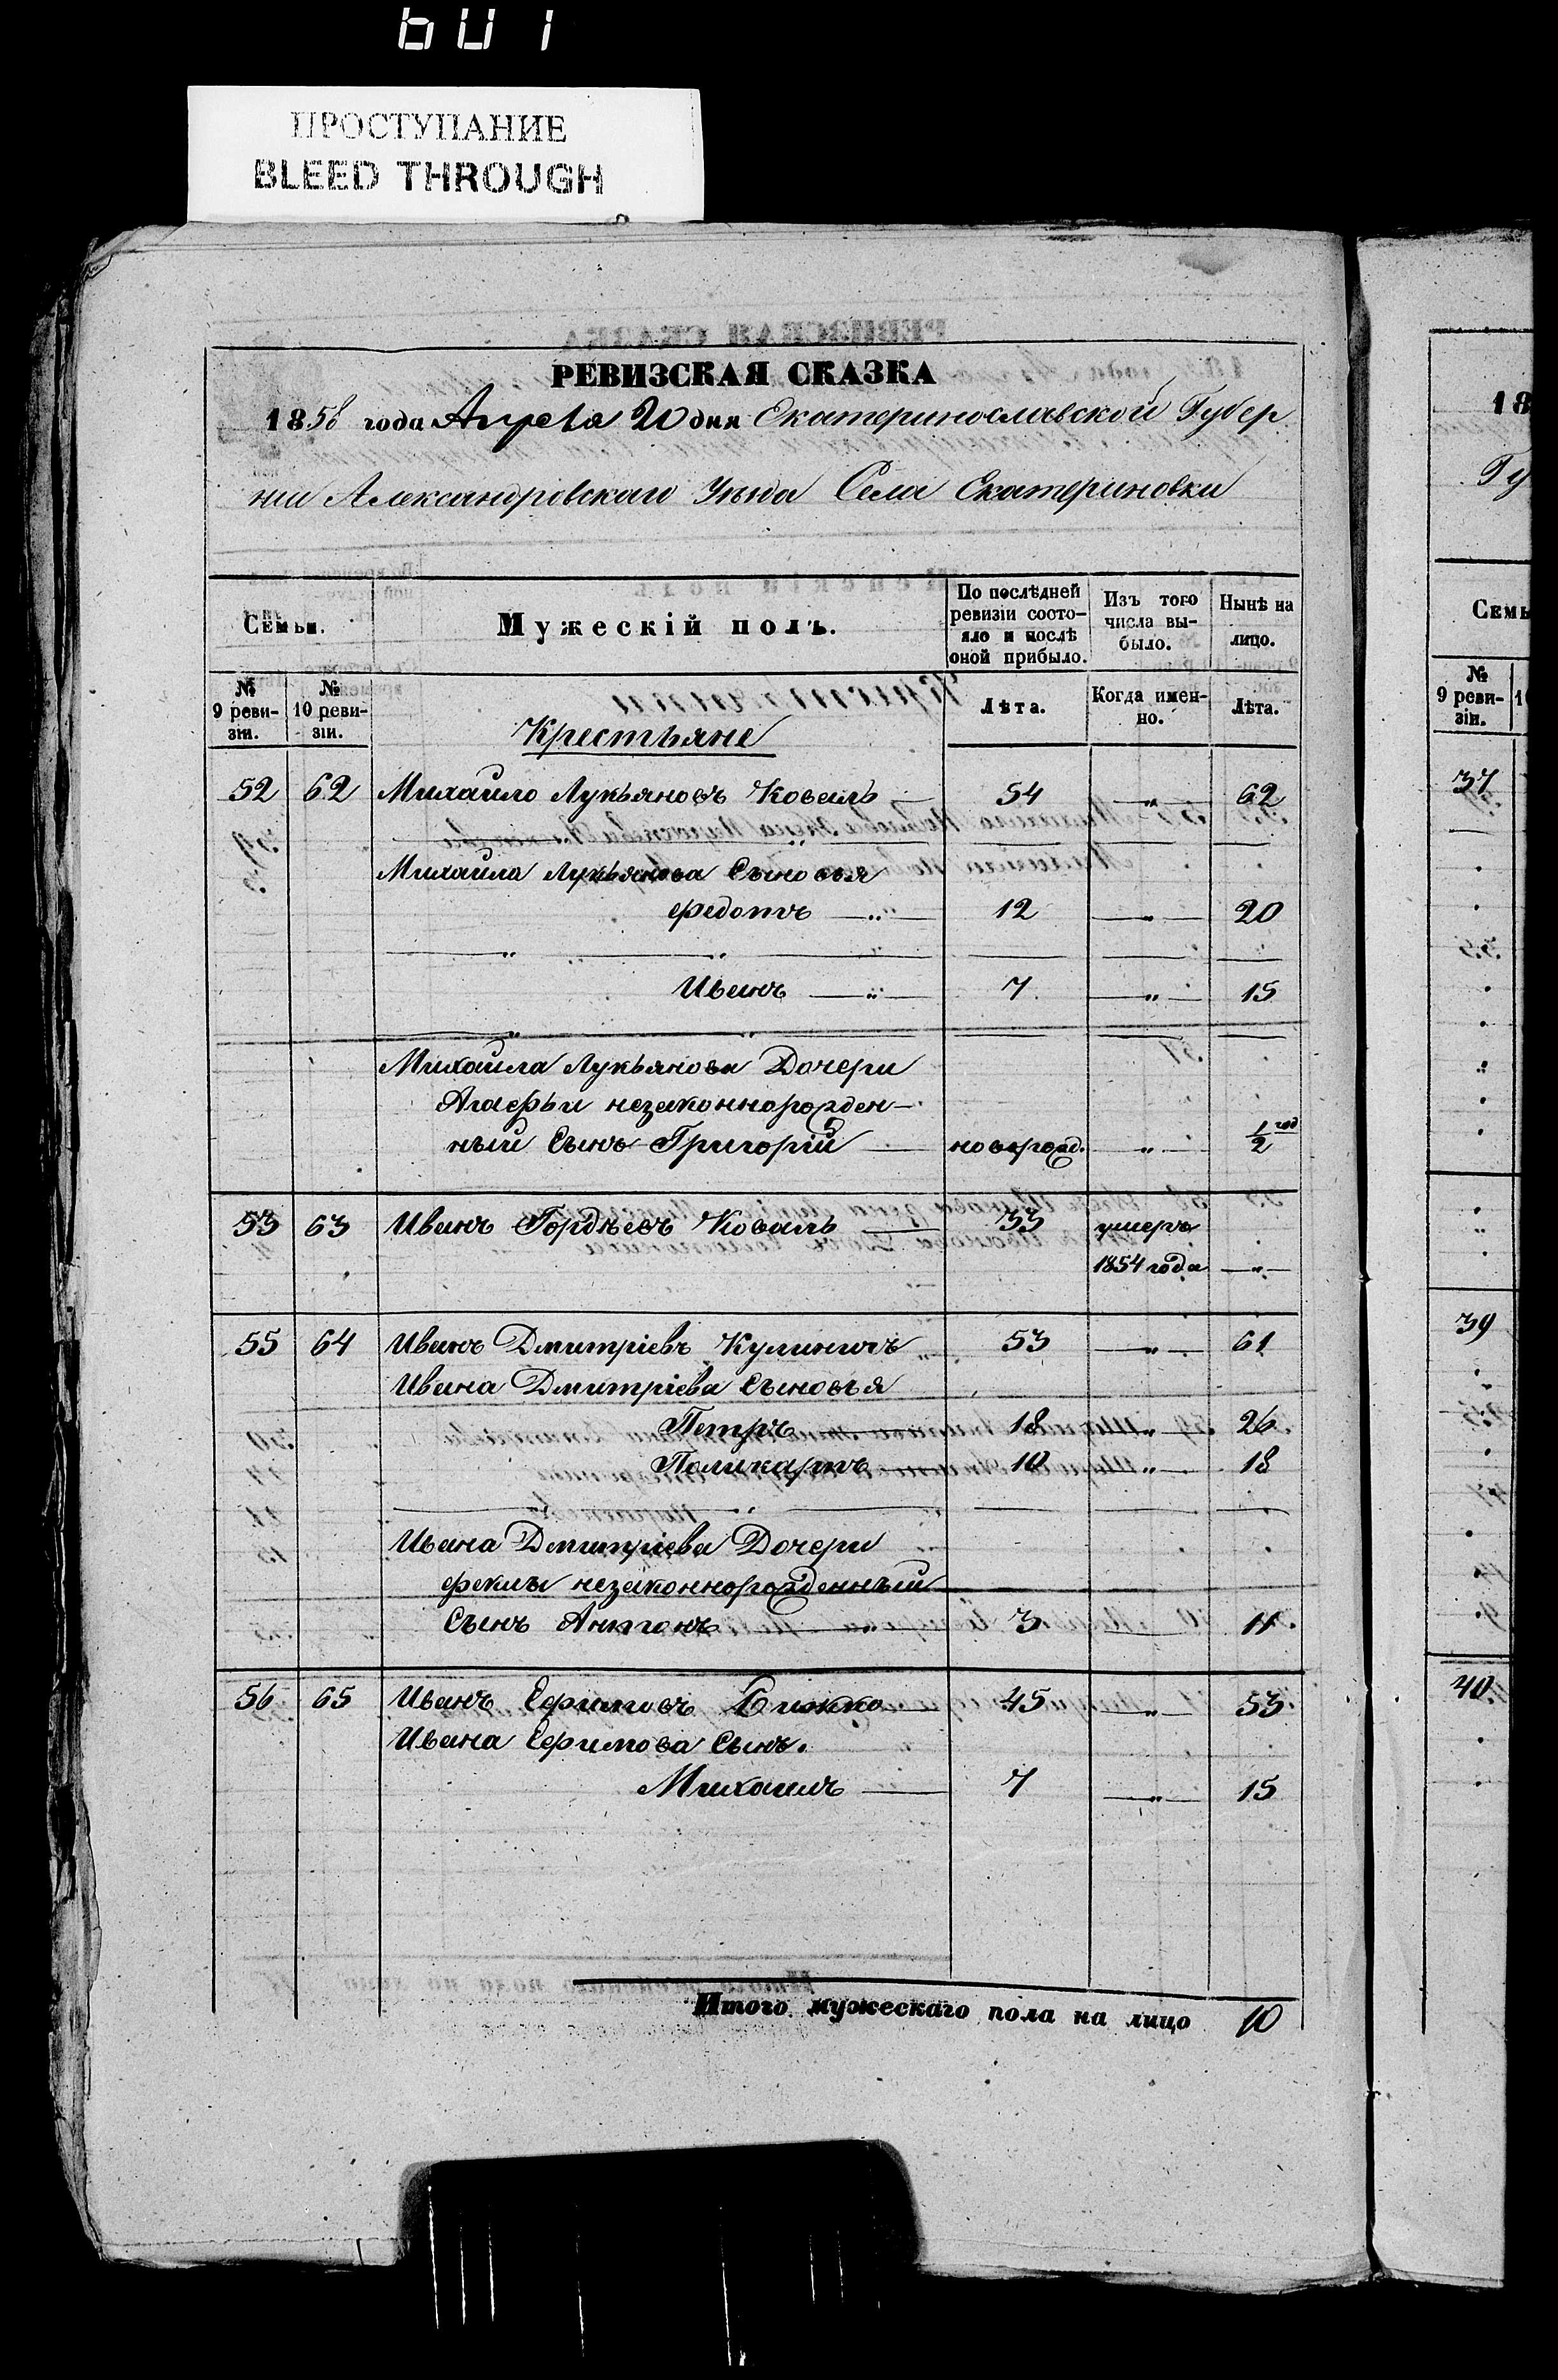 601
ПРОСТУПАНИЕ
BLEED THROUGH
РЕВИЗСКАЯ СКАЗКА
1858 года Апреля 20 дня Екатеринославской Губер
нии Александровскаго Уезда Села Екатериновки
Семьи. Мужескій полъ. По послѣдней ревизіи состояло и послѣ оной прибыло. Изъ того числа выбыло. Нынѣ на лицо.
№ 9 ревизіи. № 10 ревизіи. Лѣта. Когда именно. Лѣта.
Крестьяне
52 62 Михайло Лукьяновъ Коваль 54 „ 62
Михайла Лукьянова Сыновья
Федотъ „ 12 „ 20
Иванъ „ 7 „ 15
Михайла Лукьянова Дочери
Агафьи незаконнорожден-
ный Сынъ Григорій новорожд. „ 1/2 год
53 63 Иванъ Гордѣевъ Коваль 33 умеръ
1854 года „
55 64 Иванъ Дмитріевъ Кулиничъ „ 53 „ 61
Ивана Дмитріева Сыновья
Петръ 18 „ 26
Поликарпъ 10 „ 18
Ивана Дмитріева Дочери
Феклы незаконнорожденный
Сынъ Антонъ „ 3 11
56 65 Иванъ Ефимовъ 45 „ 53
Ивана Ефимова Сынъ.
Михаилъ 7 „ 15
Итого мужескаго пола на лицо 10
18
Гу
Семь
№ 9 ревизіи.
37
39
40